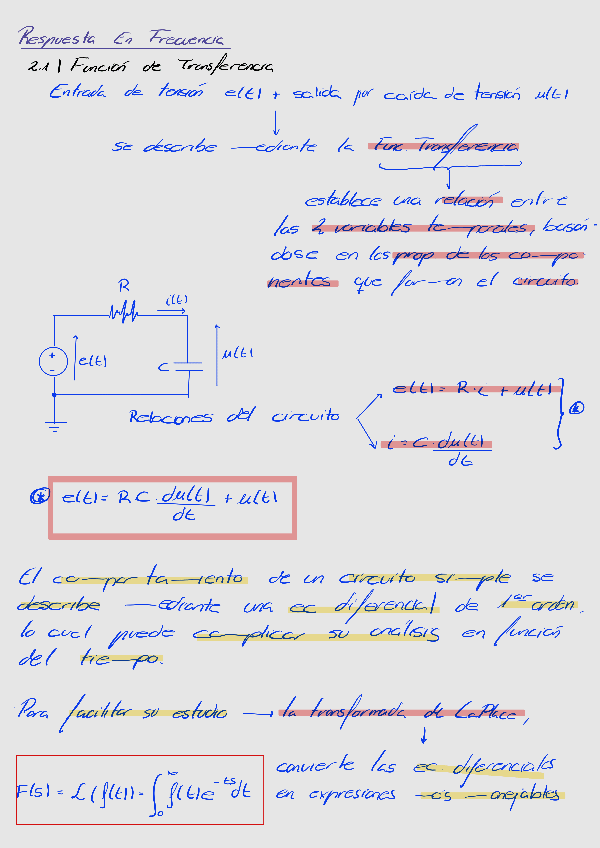 Respuesta En Frecuencia
2.1 | Función de Transferencia
Entrada de tensión e(t) + salida por caída de tensión u(t)
se describe mediante la Func. Transferencia
establece una relación entre
las 2 variables temporales, basán-
dose en las prop de los compo
nentes que forman el circuito
R
i(t)
+
-
e(t)
C
u(t)
Relaciones del circuito
e(t) = R·i + u(t)
i = C · du(t)/dt
*
* e(t) = R C · du(t)/dt + u(t)
El comportamiento de un circuito simple se
describe mediante una ec diferencial de 1er orden,
lo cual puede complicar su análisis en función
del tiempo.
Para facilitar su estudio → la transformada de LaPlace,
convierte las ec. diferenciales
en expresiones más manejables
F(s) = L(f(t)) = ∫₀^∞ f(t) e^-ts dt